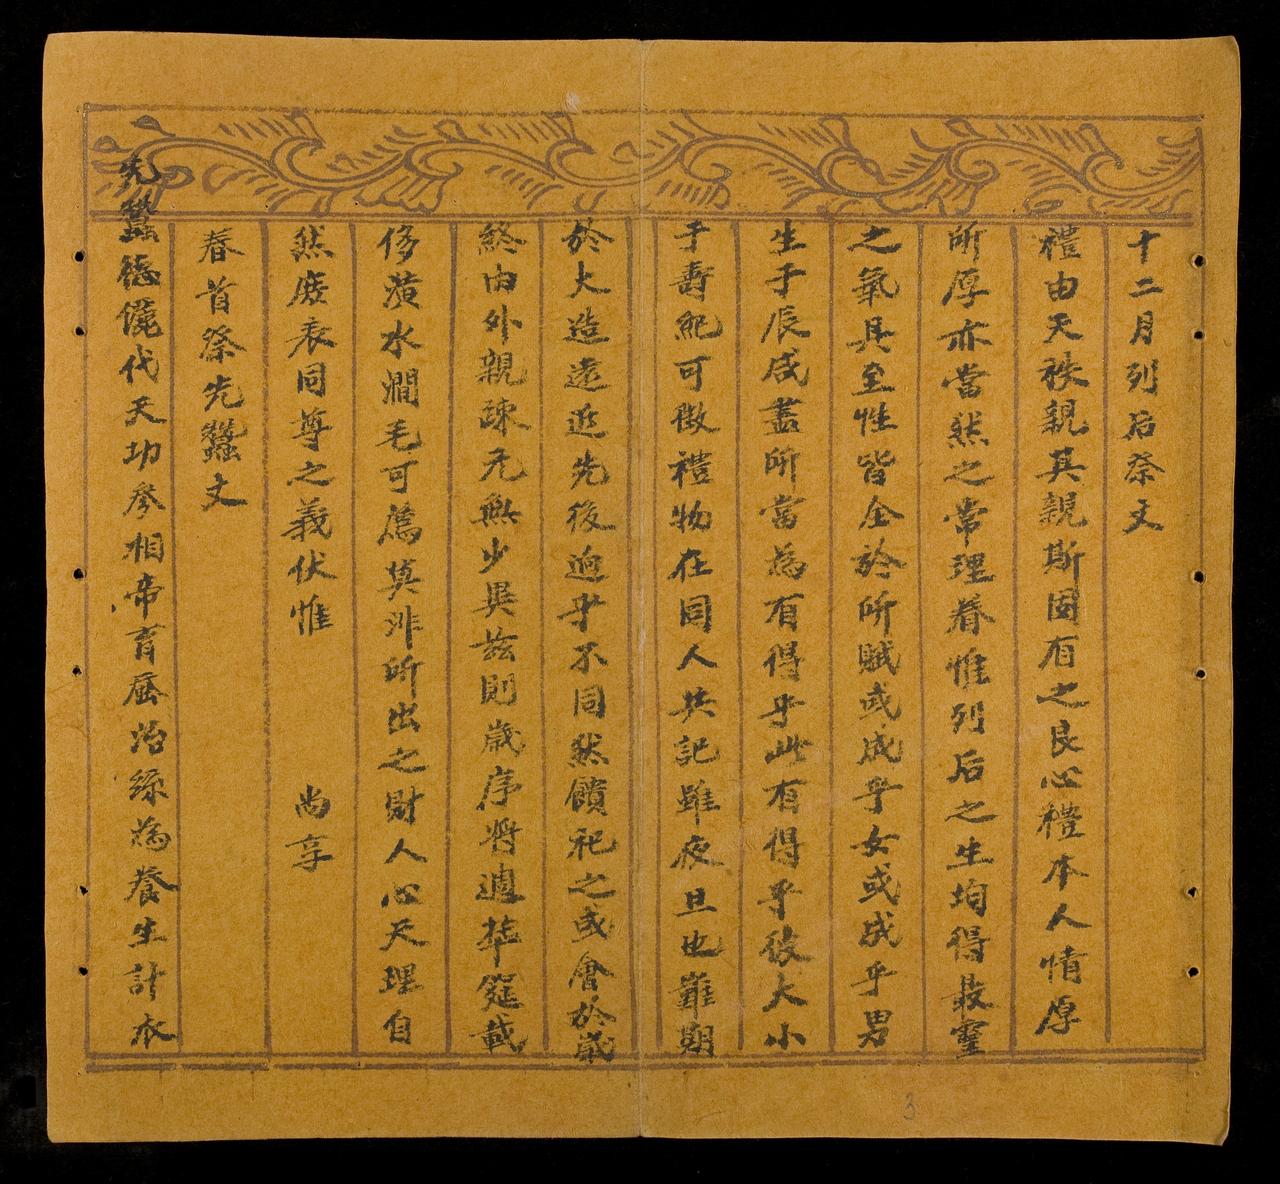 十二月列后祭文
禮由天秩親其親斯固有之良心禮本人情厚
所厚亦當然之常理眷惟列后之生均得最靈
之氣具至性皆全於所賦或成乎女或成乎男
生于辰咸盡所當為有得乎此有得乎彼大小
于壽紀可徵禮物在同人共記雖夜旦也難期
於大造遠近先後迥乎不同然饋祀之或會於歲
終由外親疎元無少異玆則歲序將週華筵載
侈潢水澗毛可薦莫非所出之財人心天理自
然庶表同尊之義伏惟 尚享
春首祭先蠶文
先蠶德儷代天功參相帝育蚕治絲為養生計衣
3